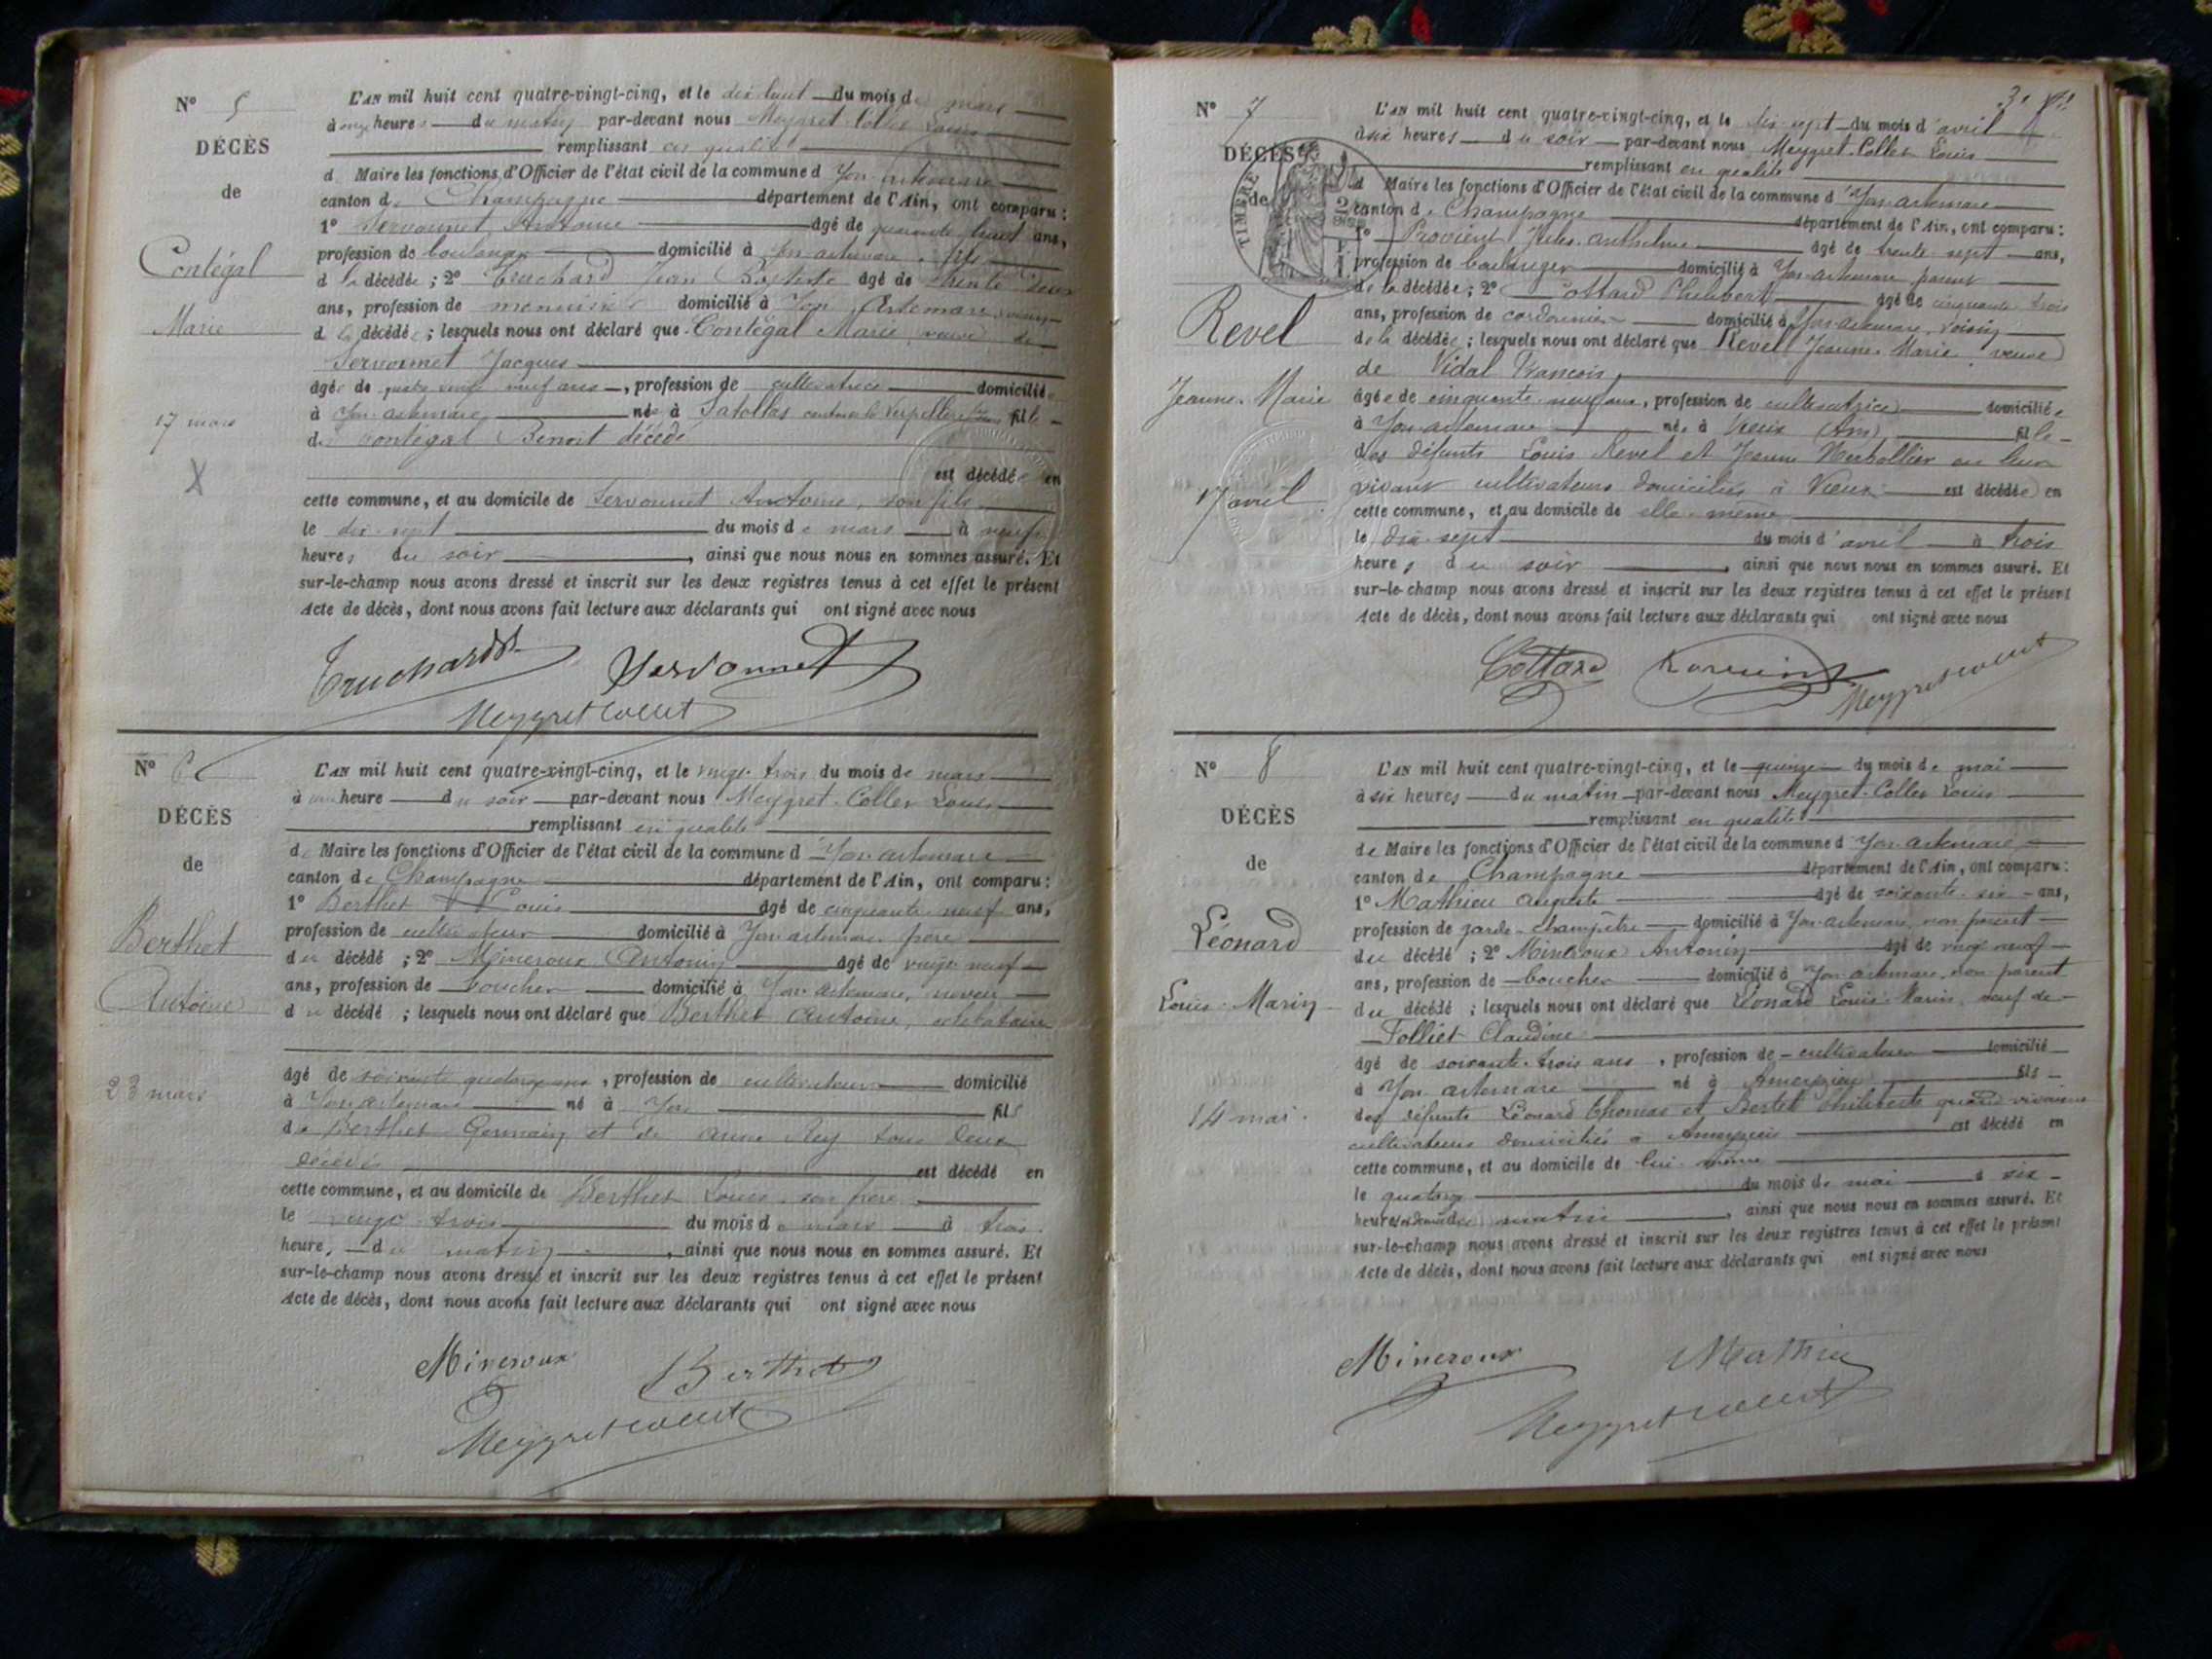 N° 5
DÉCÈS
de
Contégal
Marie
17 mars
X
L'AN mil huit cent quatre-vingt-cinq, et le dix huit du mois de mars
à onze heures du matin par-devant nous Meygret-Collet Louis
remplissant en qualité
de Maire les fonctions d'Officier de l'état civil de la commune d'Yon-artemare
canton de Champagne département de l'Ain, ont comparu :
1° Servonnet Antoine âgé de quarante huit ans,
profession de boulanger domicilié à Yon artemare, fils
de la décédée ; 2° Truchard Jean Baptiste âgé de trente deux
ans, profession de menuisier domicilié à Yon Artemare, voisin
de la décédée ; lesquels nous ont déclaré que Contégal Marie, veuve de
Servonnet Jacques
âgée de quatre vingt neuf ans, profession de cultivatrice domiciliée
à Yon-artemare née à Satollas canton de la Verpellière fille
de Contégal Benoit décédé
est décédée en
cette commune, et au domicile de Servonnet Antoine, son fils
le dix-sept du mois de mars à neuf
heures du soir, ainsi que nous nous en sommes assuré. Et
sur-le-champ nous avons dressé et inscrit sur les deux registres tenus à cet effet le présent
Acte de décès, dont nous avons fait lecture aux déclarants qui ont signé avec nous
Truchard Servonnet
Meygret Collet
N° 6
DÉCÈS
de
Berthet
Antoine
23 mars
L'AN mil huit cent quatre-vingt-cinq, et le vingt-trois du mois de mars
à une heure du soir par-devant nous Meygret-Collet Louis
remplissant en qualité
de Maire les fonctions d'Officier de l'état civil de la commune d'Yon artemare
canton de Champagne département de l'Ain, ont comparu :
1° Berthet Louis âgé de cinquante-neuf ans,
profession de cultivateur domicilié à Yon artemare frère
du décédé ; 2° Mineroux Antonin âgé de vingt neuf
ans, profession de boucher domicilié à Yon artemare, neveu
du décédé ; lesquels nous ont déclaré que Berthet Antoine, célibataire
âgé de soixante quatorze ans, profession de cultivateur domicilié
à Yon artemare né à Yon fils
de Berthet Germain et de Anne Rey tous deux
décédés est décédé en
cette commune, et au domicile de Berthet Louis, son frère
le vingt-trois du mois de mars à trois
heures du matin, ainsi que nous nous en sommes assuré. Et
sur-le-champ nous avons dressé et inscrit sur les deux registres tenus à cet effet le présent
Acte de décès, dont nous avons fait lecture aux déclarants qui ont signé avec nous
Mineroux Berthet
Meygret Collet
3e
N° 7
DÉCÈS
de
TIMBRE
Revel
Jeanne-Marie
17 avril
L'AN mil huit cent quatre-vingt-cinq, et le dix-sept du mois d'avril
à six heures du soir par-devant nous Meygret-Collet Louis
remplissant en qualité
d Maire les fonctions d'Officier de l'état civil de la commune d'Yon-artemare
canton de Champagne département de l'Ain, ont comparu :
1° Jules anthelme âgé de trente-sept ans,
profession de boulanger domicilié à Yon-artemare parent
de la décédée ; 2° Cottard Philibert âgé de cinquante-trois
ans, profession de cordonnier domicilié à Yon-artemare, voisin
de la décédée ; lesquels nous ont déclaré que Revel Jeanne-Marie veuve
de Vidal François,
âgée de cinquante-neuf ans, profession de cultivatrice domiciliée
à Yon-artemare née à Vieux (Ain) fille
des défunts Louis Revel et Jeanne en leur
vivant cultivateurs domiciliés à Vieux est décédée en
cette commune, et au domicile de elle-même
le dix-sept du mois d'avril à trois
heures du soir, ainsi que nous nous en sommes assuré. Et
sur-le-champ nous avons dressé et inscrit sur les deux registres tenus à cet effet le présent
Acte de décès, dont nous avons fait lecture aux déclarants qui ont signé avec nous
Cottard
Meygret Collet
N° 8
DÉCÈS
de
Léonard
Louis-Marin
14 mai.
L'AN mil huit cent quatre-vingt-cinq, et le quinze du mois de mai
à six heures du matin par-devant nous Meygret-Collet Louis
remplissant en qualité
de Maire les fonctions d'Officier de l'état civil de la commune d'Yon-artemare
canton de Champagne département de l'Ain, ont comparu :
1° Mathieu Auguste âgé de soixante-six ans,
profession de garde-champêtre domicilié à Yon-artemare, non parent
du décédé ; 2° Mineroux Antonin âgé de vingt neuf
ans, profession de boucher domicilié à Yon-artemare, non parent
du décédé ; lesquels nous ont déclaré que Léonard Louis-Marin, veuf de
Folliet Claudine
âgé de soixante-trois ans, profession de cultivateur domicilié
à Yon artemare né à Ameyzieu fils
des défunts Léonard Thomas et Bertet Philiberte quand vivaient
cultivateurs domiciliés à Ameyzieu est décédé en
cette commune, et au domicile de lui-même
le quatorze du mois de mai à six
heures et demie du matin, ainsi que nous nous en sommes assuré. Et
sur-le-champ nous avons dressé et inscrit sur les deux registres tenus à cet effet le présent
Acte de décès, dont nous avons fait lecture aux déclarants qui ont signé avec nous
Mineroux Mathieu
Meygret Collet